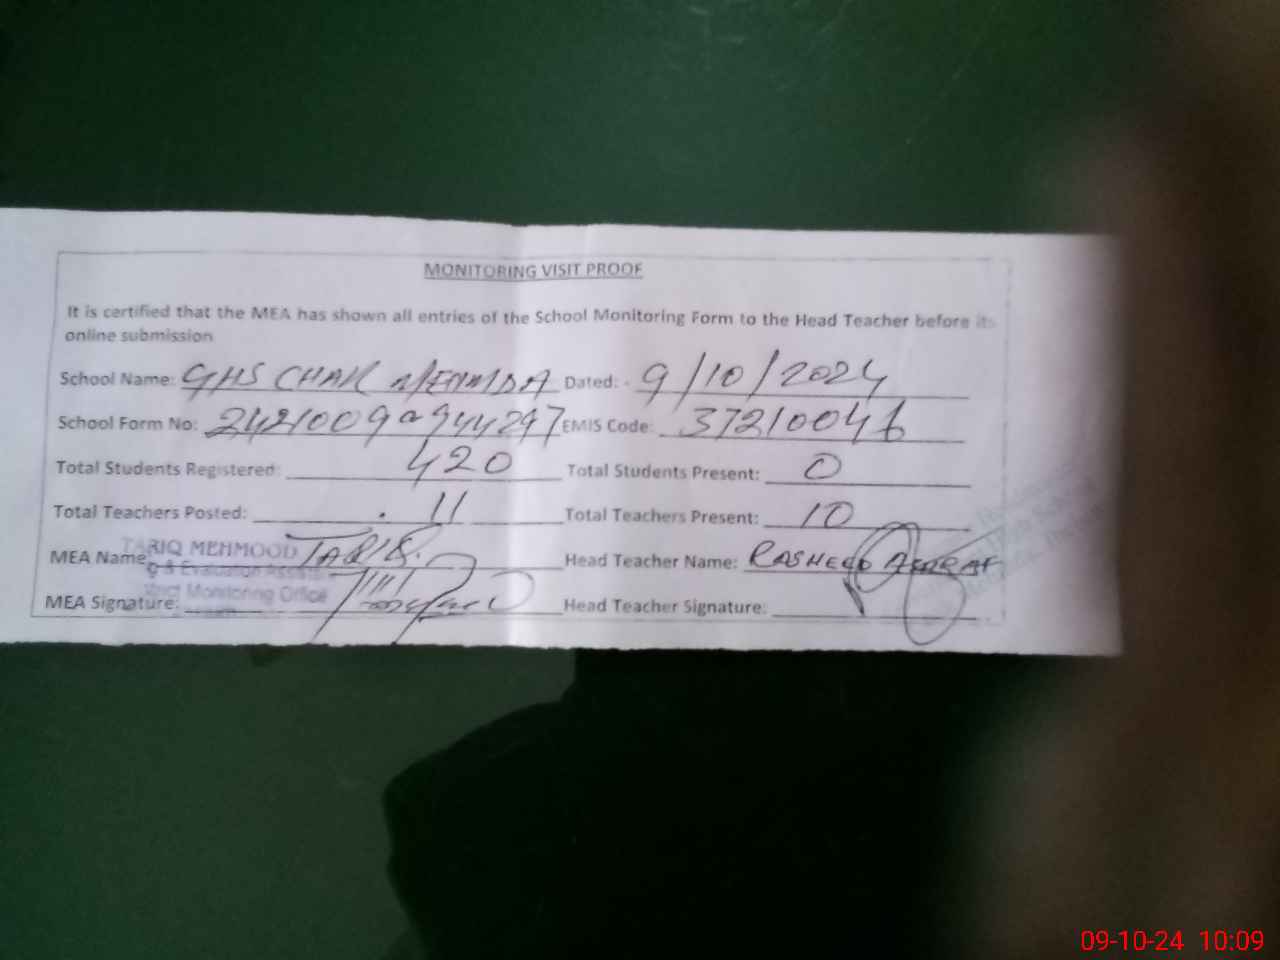 MONITORING VISIT PROOF
It is certified that the MEA has shown all entries of the School Monitoring Form to the Head Teacher before its
online submission
School Name: GHS CHAK Dated: 9/10/2024
School Form No: EMIS Code: 37210046
Total Students Registered: 420 Total Students Present: 0
Total Teachers Posted: 11 Total Teachers Present: 10
MEA Name: TARIQ MEHMOOD TARIQ. Head Teacher Name: RASHEED ASHRAF
g & Evaluation Assist
Monitoring Office
MEA Signature: Head Teacher Signature:
09-10-24 10:09